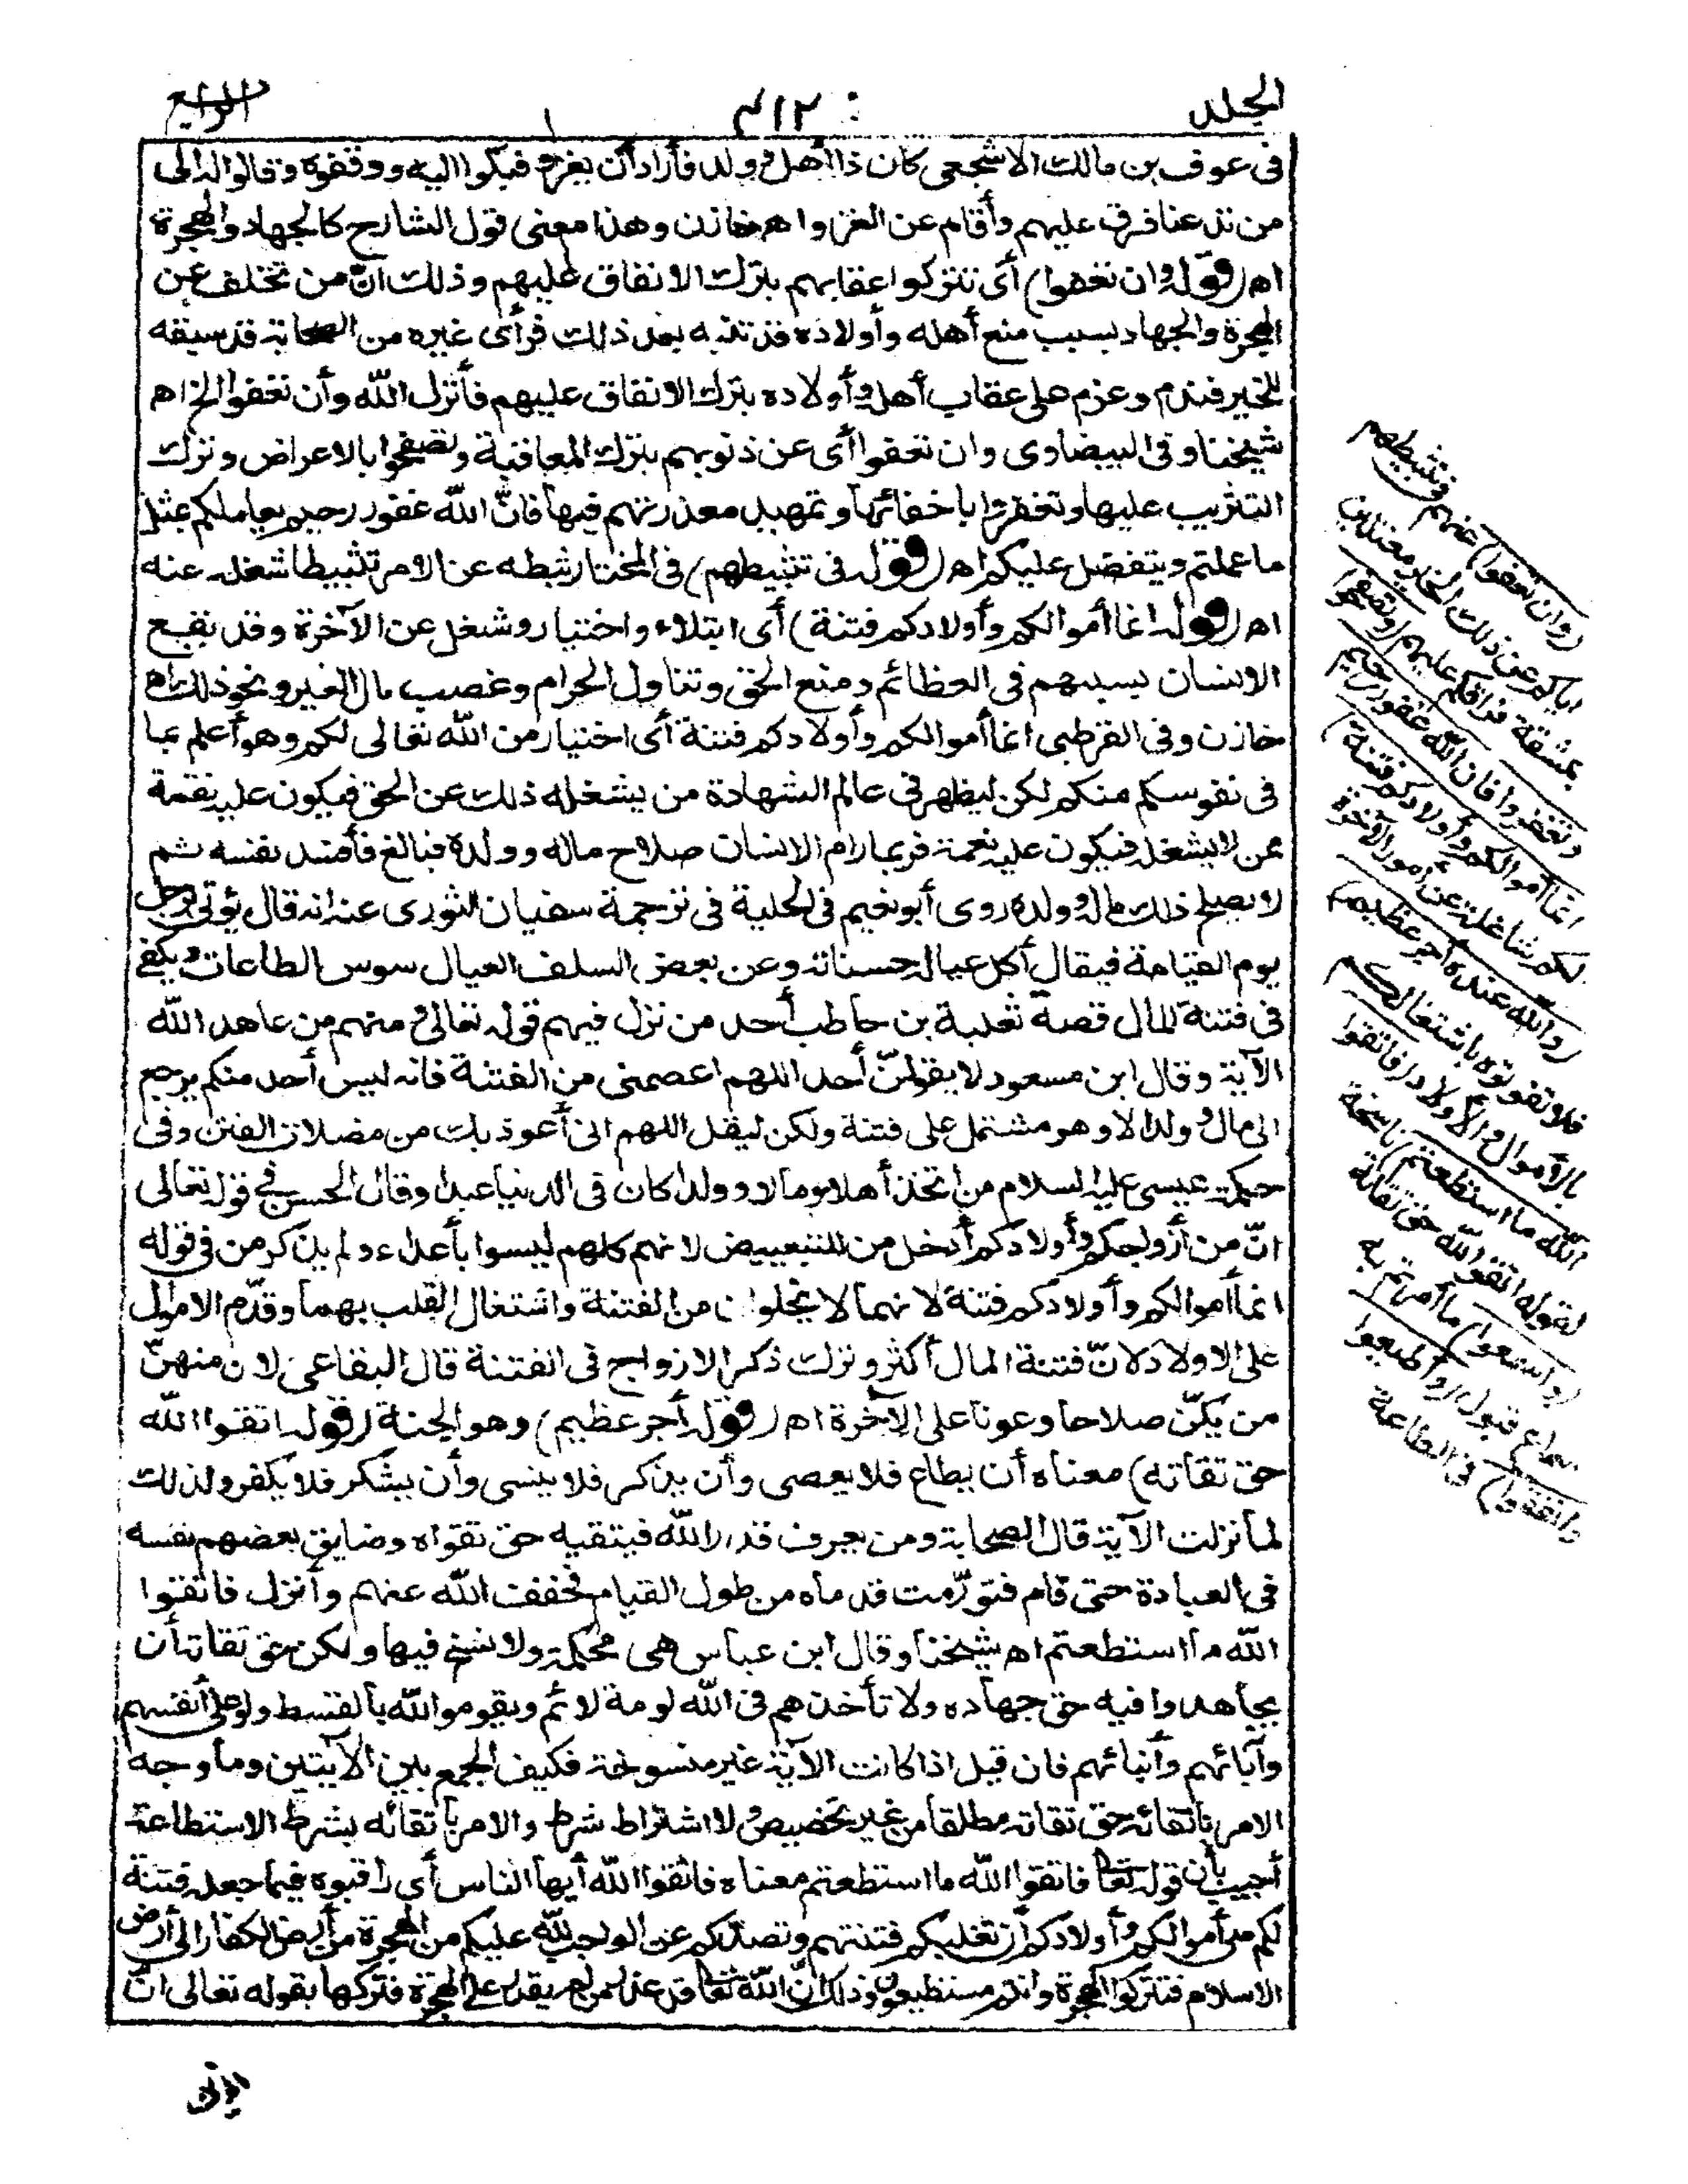 الجلد
٤١٢
الرابع
فى عوف بن مالك الاشجعى كان ذا أهل وولد فأراد أن يغزو فبكوا اليه ووقفوه وقالوا الى
من تدعنا فرق عليهم وأقام عن الغزو اه خازن وهذا معنى قول الشارح كالجهاد والهجرة
اه (قوله وان تعفوا) أى تتركوا عقابهم بترك الانفاق عليهم وذلك انّ من تخلف عن
الهجرة والجهاد بسبب منع أهله وأولاده قد تنبه بعد ذلك فرأى غيره من الصحابة قد سبقه
للخير فندم وعزم على عقاب أهله وأولاده بترك الانفاق عليهم فأنزل الله وأن تعفوا الخ اه
شيخنا وفى البيضاوى وان تعفوا أى عن ذنوبهم بترك المعاقبة وتصفحوا بالاعراض وترك
التثريب عليها وتغفروا باخفائها وتمهيد معذرتهم فيها فانّ الله غفور رحيم يعاملكم بمثل
ما عملتم ويتفضل عليكم اه (قوله فى تثبيطهم) فى المختار ثبطه عن الامر تثبيطا شغله عنه
اه (قوله انما أموالكم وأولادكم فتنة) أى ابتلاء واختبار وشغل عن الآخرة وقد يقع
الانسان بسببهم فى العظائم ومنع الحق وتناول الحرام وغصب مال الغير ونحو ذلك اه
خازن وفى القرطبى انما أموالكم وأولادكم فتنة أى اختبار من الله تعالى لكم وهو أعلم بما
فى نفوسكم منكم لكن ليظهر فى عالم الشهادة من يشغله ذلك عن الحق فيكون عليه نقمة
ممن لا يشغله فيكون عليه نعمة فربما رام الانسان صلاح ماله وولده فبالغ فأفسد نفسه ثم
لا يصلح ذلك ماله وولده روى أبو نعيم فى الحلية فى ترجمة سفيان الثورى عنه انه قال يؤتى برجل
يوم القيامة فيقال أكل عياله حسناته وعن بعض السلف العيال سوس الطاعات ويكفى
فى فتنة المال قصة ثعلبة بن حاطب أحد من نزل فيهم قوله تعالى ومنهم من عاهد الله
الآية وقال ابن مسعود لا يقولنّ أحد اللهم اعصمنى من الفتنة فانه ليس أحد منكم يرجع
الى مال وولد الا وهو مشتمل على فتنة ولكن ليقل اللهم انى أعوذ بك من مضلات الفتن وفى
حكمة عيسى عليه السلام من اتخذ أهلا ومالا وولدا كان فى الدنيا عبدا وقال الحسن فى قوله تعالى
انّ من أزواجكم وأولادكم أدخل من للتبعيض لانهم كلهم ليسوا بأعداء ولم يذكر من فى قوله
انما أموالكم وأولادكم فتنة لانهما لا يخلوان من الفتنة واشتغال القلب بهما وقدّم الاموال
على الاولاد لانّ فتنة المال أكثر وترك ذكر الازواج فى الفتنة قال البقاعى لان منهنّ
من يكنّ صلاحا وعونا على الآخرة اه (قوله أجر عظيم) وهو الجنة (قوله اتقوا الله
حق تقاته) معناه أن يطاع فلا يعصى وأن يذكر فلا ينسى وأن يشكر فلا يكفر ولذلك
لما نزلت الآية قال الصحابة ومن يعرف قدر الله فيتقيه حق تقواه وضايق بعضهم نفسه
فى العبادة حتى قام فتورّمت قدماه من طول القيام فخفف الله عنهم وأنزل فاتقوا
الله ما استطعتم اه شيخنا وقال ابن عباس هى محكمة ولا نسخ فيها ولكن حق تقاته أن
يجاهدوا فيه حق جهاده ولا تأخذهم فى الله لومة لائم ويقوموا لله بالقسط ولو على أنفسهم
وآبائهم وأبنائهم فان قيل اذا كانت الآية غير منسوخة فكيف الجمع بين الآيتين وما وجه
الامر باتقائه حق تقاته مطلقا من غير تخصيص ولا اشتراط شرط والامر باتقائه بشرط الاستطاعة
أجيب بأن قوله تعالى فاتقوا الله ما استطعتم معناه فاتقوا الله أيها الناس أى راقبوه فيما جعله فتنة
لكم من أموالكم وأولادكم أن تغلبكم فتنتهم وتصدّكم عن الواجب لله عليكم من الهجرة من أرض الكفار الى أرض
الاسلام فتتركوا الهجرة وانتم مستطيعون وذلك أنّ الله تعالى قد عذر من لم يقدر على الهجرة فتركها بقوله تعالى انّ
(وان تعفوا) عنهم فى تثبيطهم
اياكم عن ذلك الخير معتلين
بمشقة فراقكم عليهم (وتصفحوا
وتغفروا فان الله غفور رحيم
انما أموالكم وأولادكم فتنة)
لكم شاغلة عن أمور الآخرة
(والله عنده أجر عظيم)
فلا تفوتوه باشتغالكم
بالاموال والأولاد (فاتقوا
الله ما استطعتم) ناسخة
لقوله اتقوا الله حق تقاته
(واسمعوا) ما أمرتم به
سماع قبول (وأطيعوا
وانفقوا) فى الطاعة